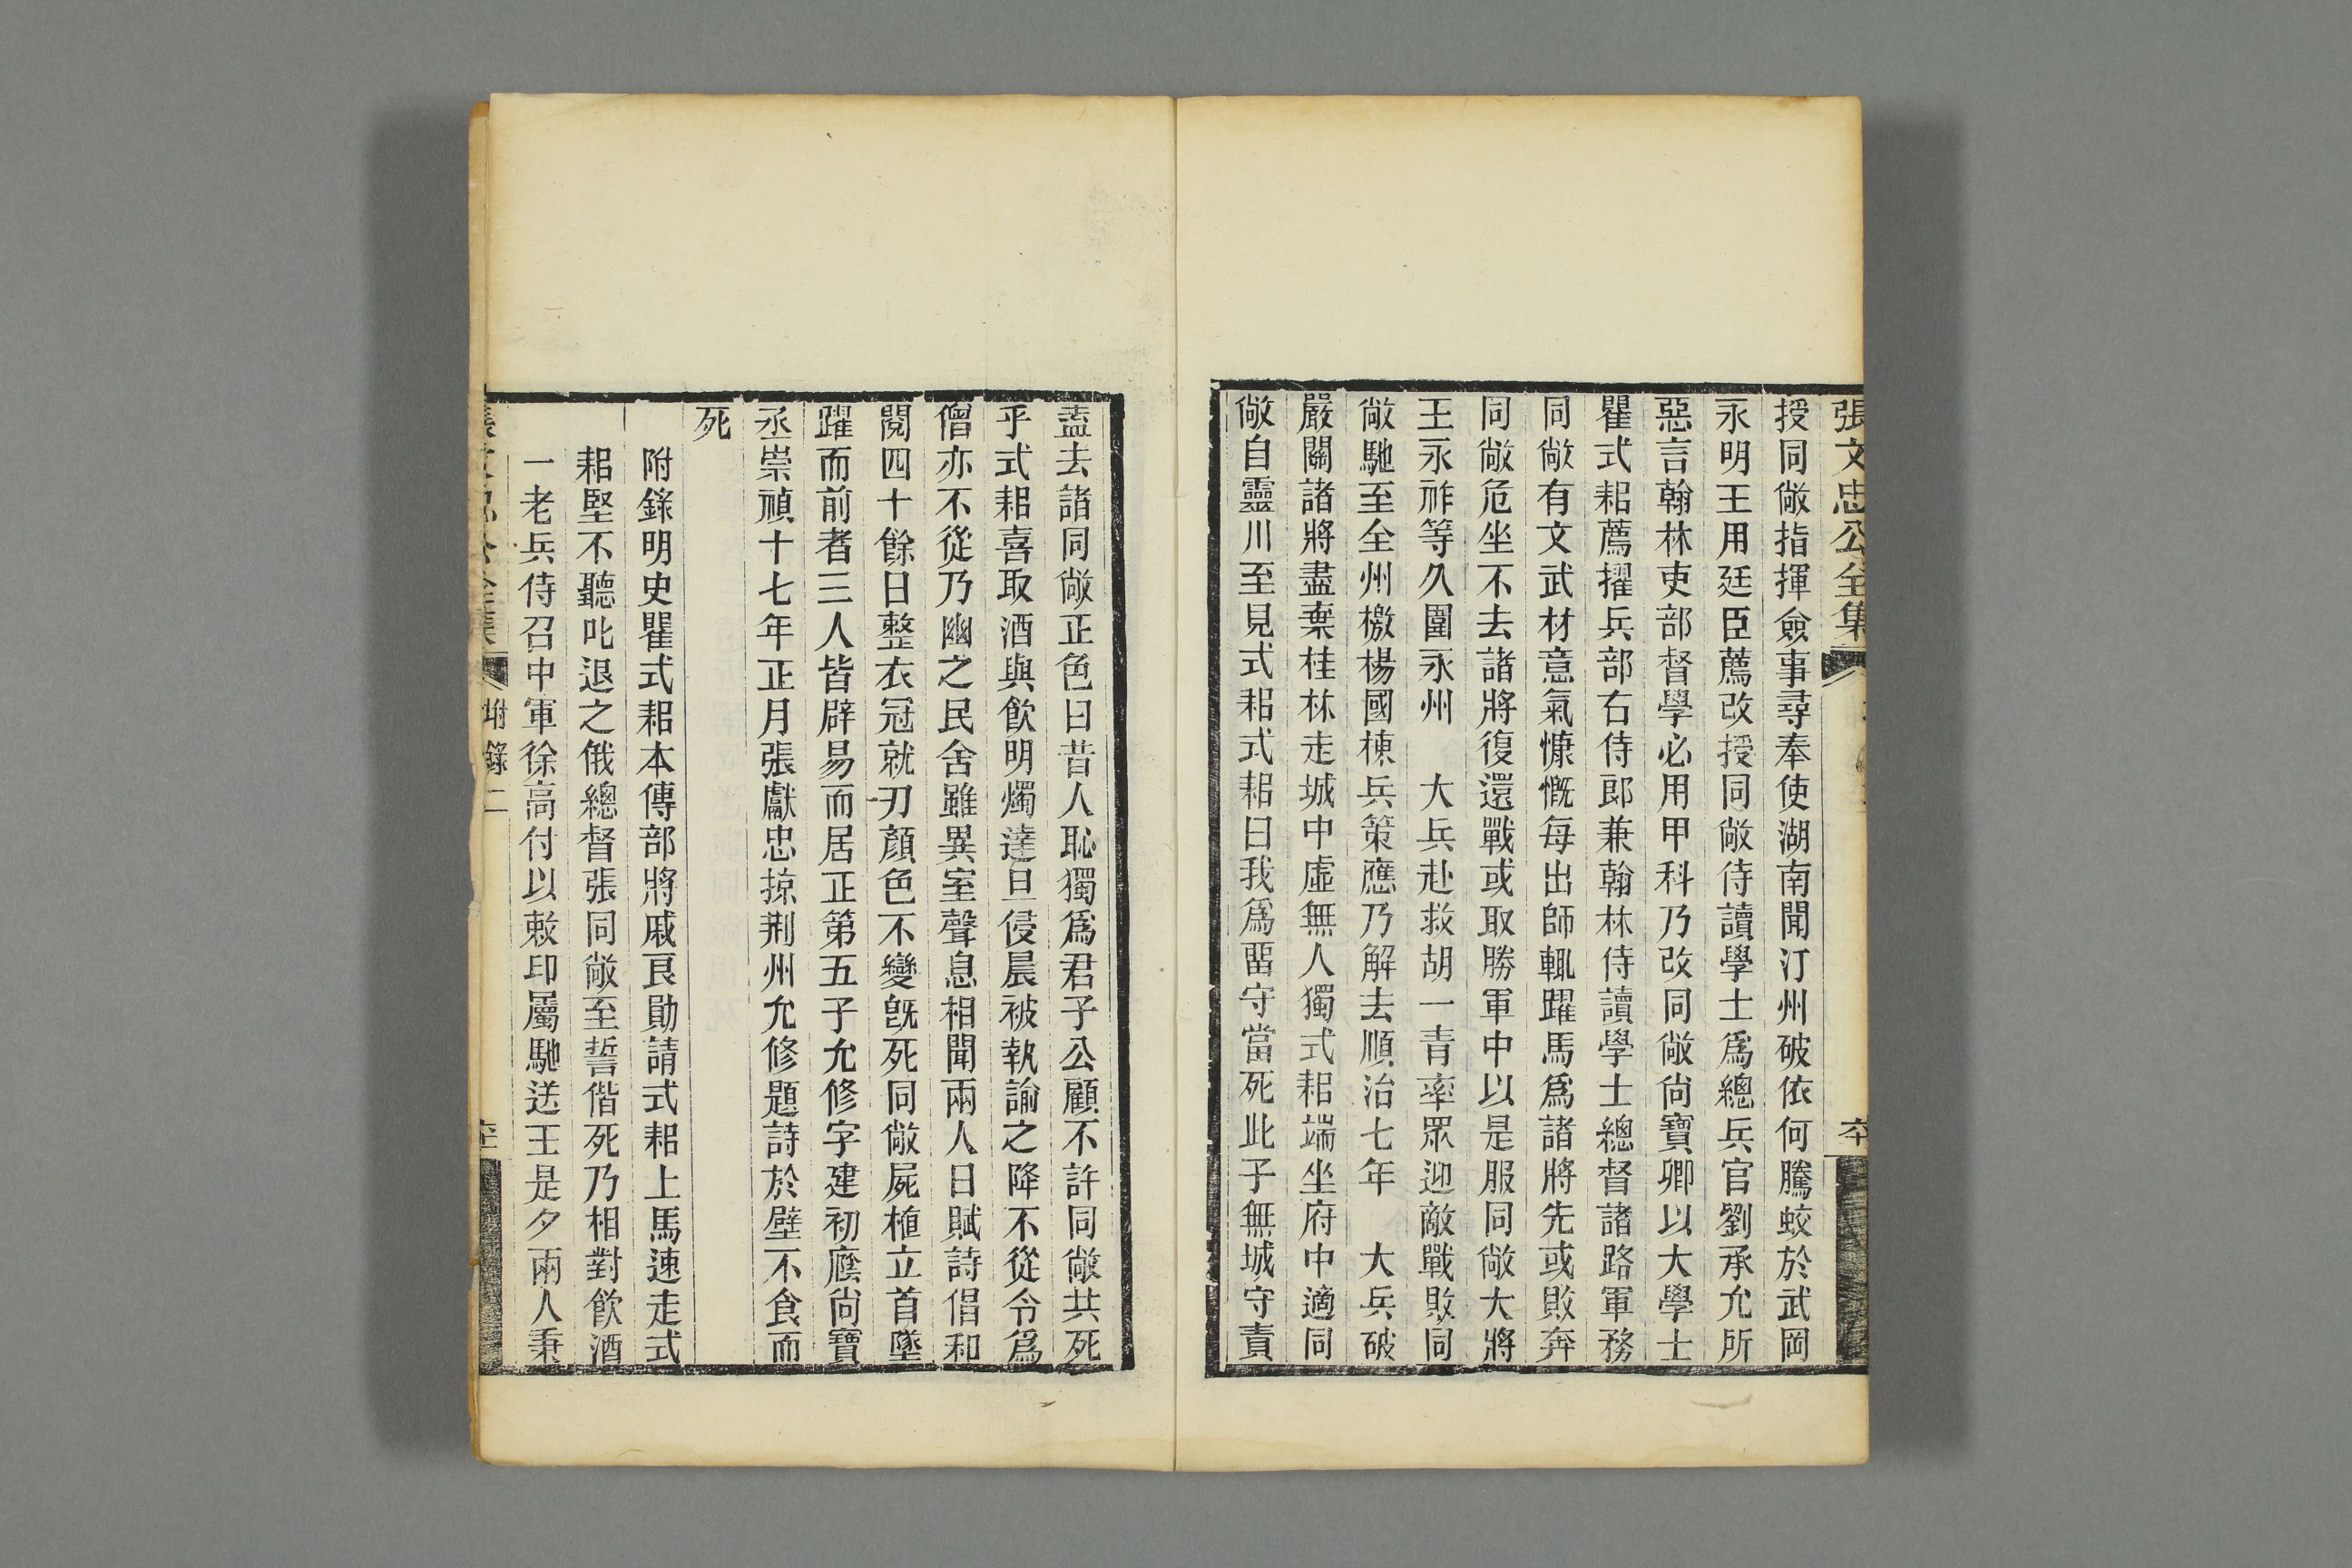 張文忠公全集
授同敞指揮僉事尋奉使湖南聞汀州破依何騰蛟於武岡
永明王用廷臣薦改授同敞侍讀學士爲總兵官劉承允所
惡言翰林吏部督學必用甲科乃改同敞尙寶卿以大學士
瞿式耜薦擢兵部右侍郎兼翰林侍讀學士總督諸路軍務
同敞有文武材意氣慷慨每出師輒躍馬爲諸將先或敗奔
同敞危坐不去諸將復還戰或取勝軍中以是服同敞大將
王永祚等久圍永州　大兵赴救胡一青率眾迎敵戰敗同
敞馳至全州檄楊國棟兵策應乃解去順治七年　大兵破
嚴關諸將盡棄桂林走城中虛無人獨式耜端坐府中適同
敞自靈川至見式耜式耜曰我爲畱守當死此子無城守責
盍去諸同敞正色曰昔人恥獨爲君子公顧不許同敞共死
乎式耜喜取酒與飮明燭達旦侵晨被執諭之降不從令爲
僧亦不從乃幽之民舍雖異室聲息相聞兩人日賦詩倡和
閱四十餘日整衣冠就刃顏色不變旣死同敞屍植立首墜
躍而前者三人皆辟易而居正第五子允修字建初廕尙寶
丞崇禎十七年正月張獻忠掠荆州允修題詩於壁不食而
死
附錄明史瞿式耜本傳部將戚良勛請式耜上馬速走式
耜堅不聽叱退之俄總督張同敞至誓偕死乃相對飮酒
一老兵侍召中軍徐高付以敕印屬馳送王是夕兩人秉
附錄二